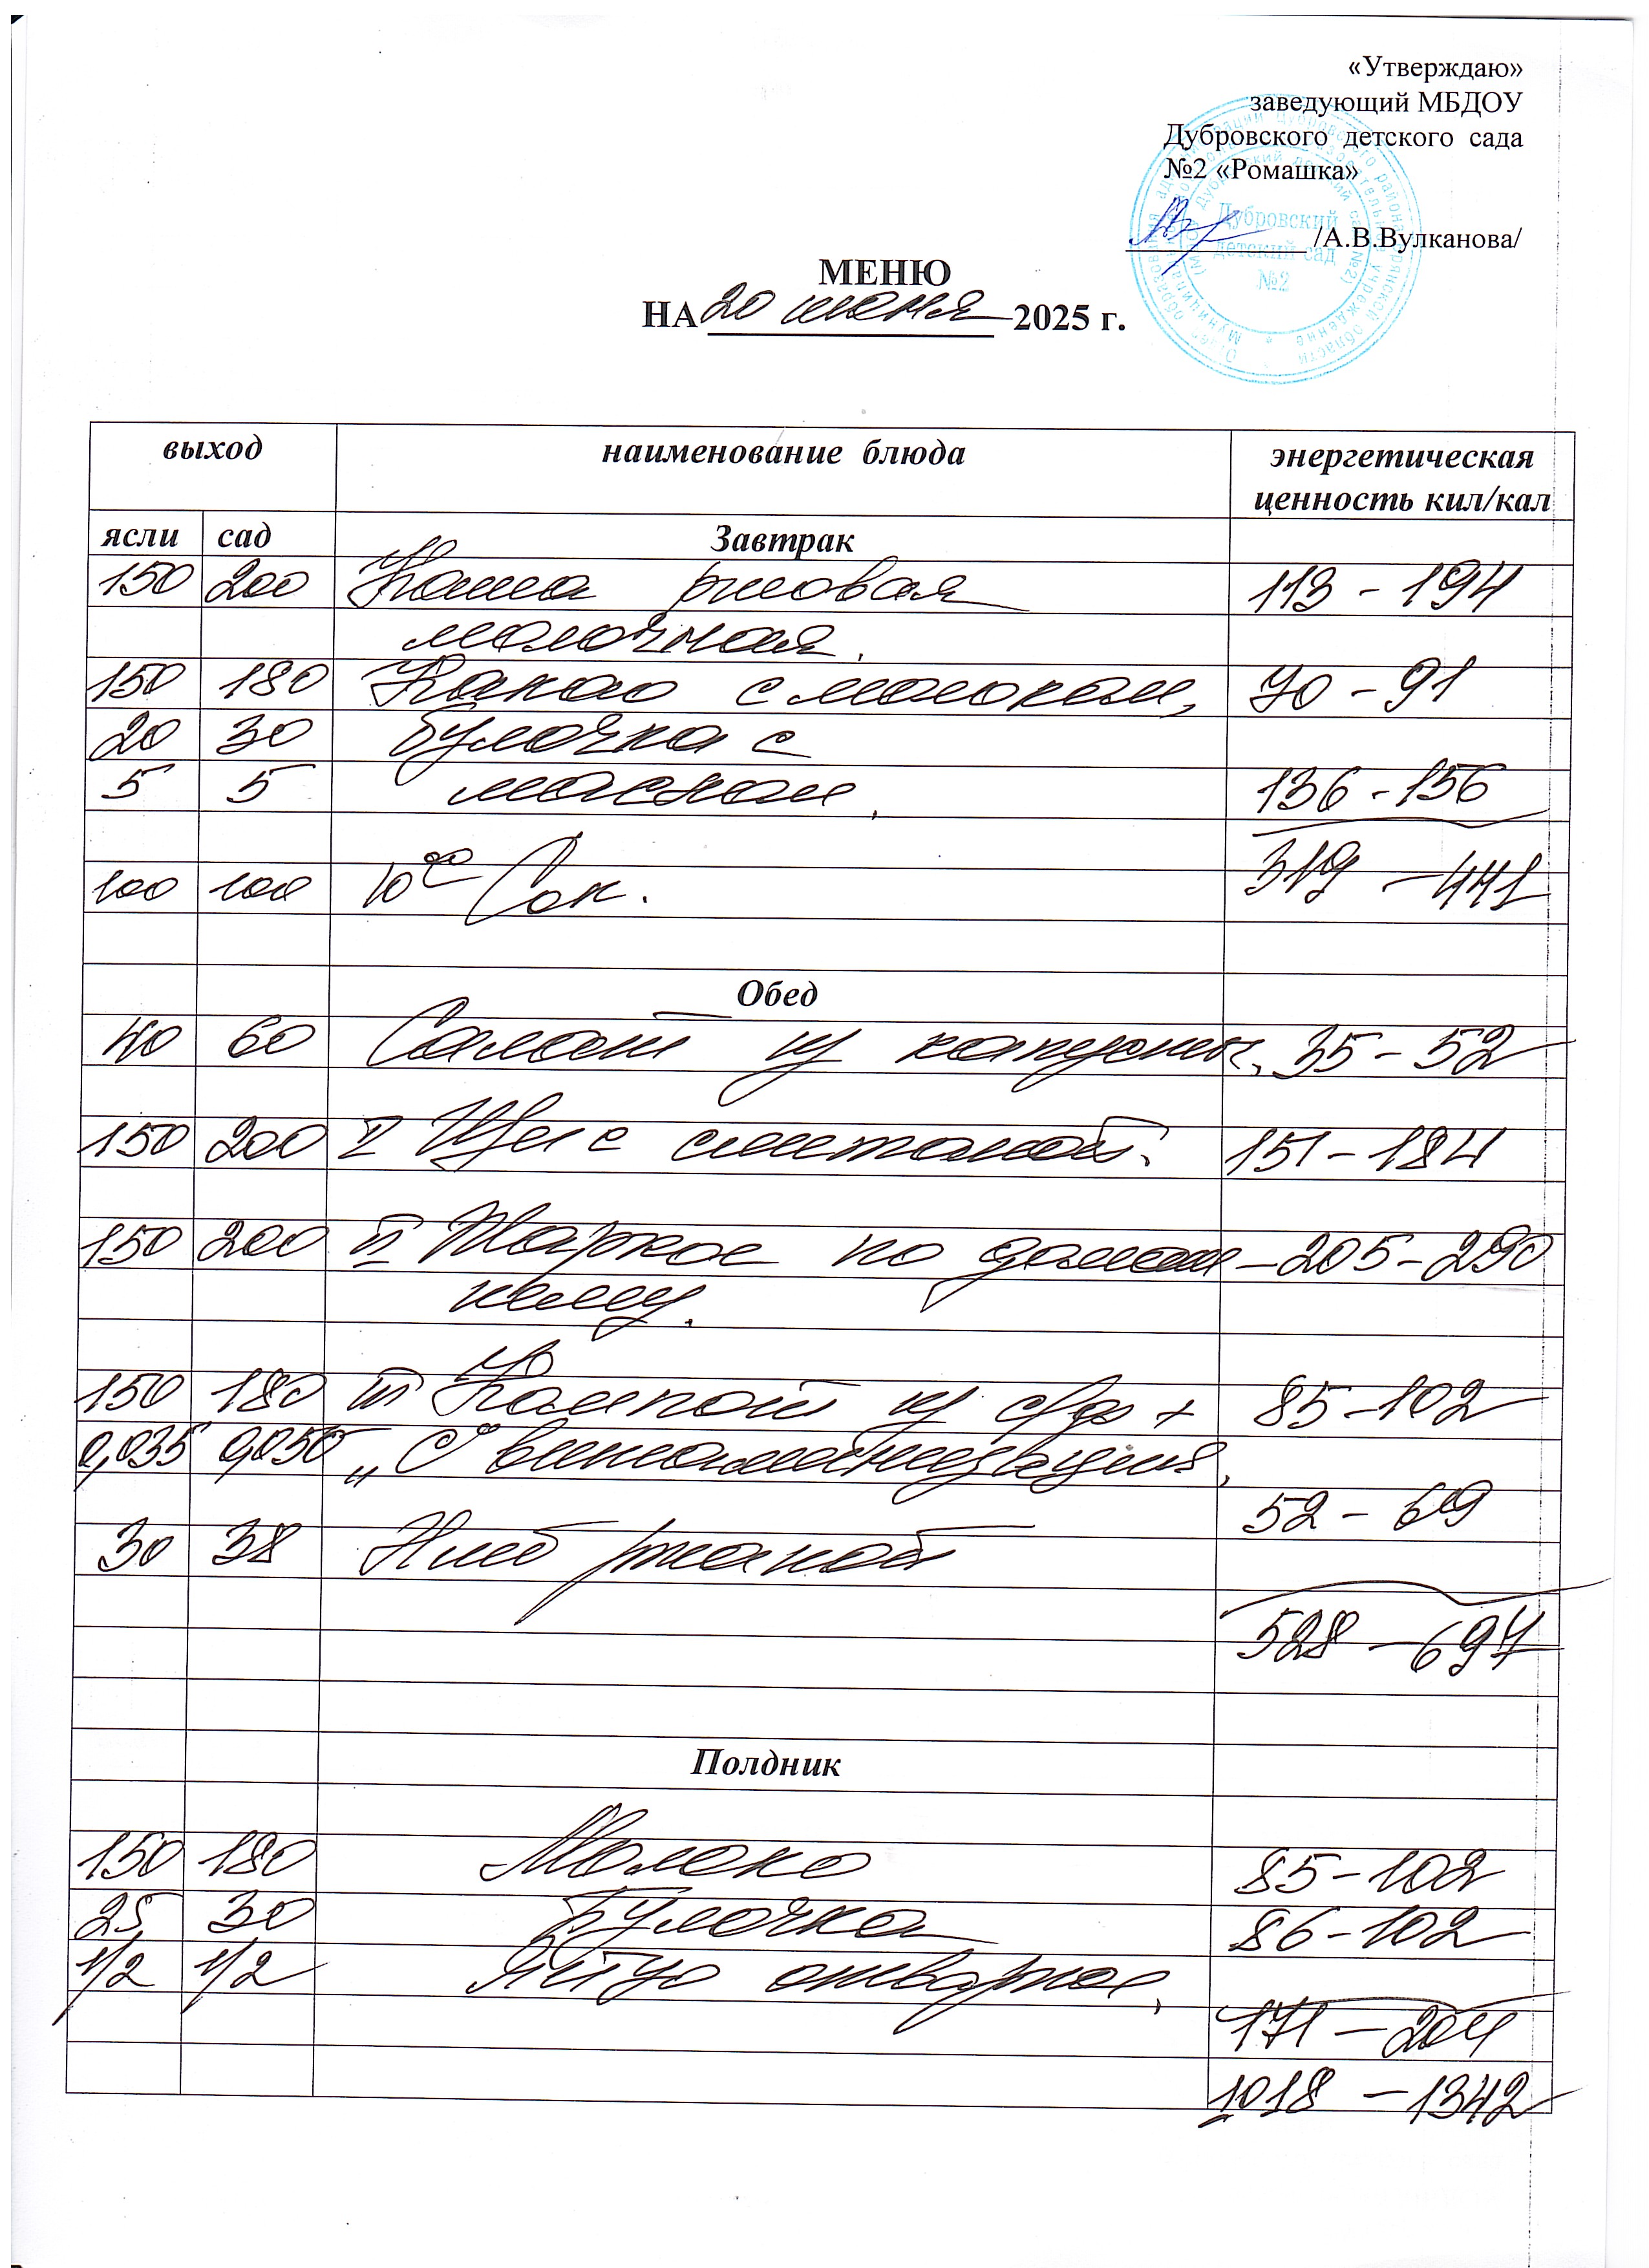 «Утверждаю»
заведующий МБДОУ
Дубровского детского сада
№2 «Ромашка»
/А.В.Вулканова/
Дубровский
детский сад
№2
МЕНЮ
НА 20 июня 2025 г.
выход наименование блюда энергетическая
ценность кил/кал
ясли сад Завтрак
150 200 Каша рисовая 113 - 194
молочная.
150 180 Какао с молоком, 70 - 91
20 30 булочка с
5 5 маслом. 136 - 156
319 - 441
100 100 10⁰⁰ Сок.
Обед
40 60 Салат из капусты, 35 - 52
150 200 I Щи с сметаной. 151 - 184
150 200 II Жаркое по домаш - 205 - 290
нему.
150 180 III Компот из с/ф + 85 - 102
0,035 0,050 „С" витаминизация,
52 - 69
30 38 Хлеб ржаной
528 - 697
Полдник
150 180 Молоко 85 - 102
25 30 Булочка 86 - 102
1/2 1/2 Яйцо отварное,
171 - 204
1018 - 1342